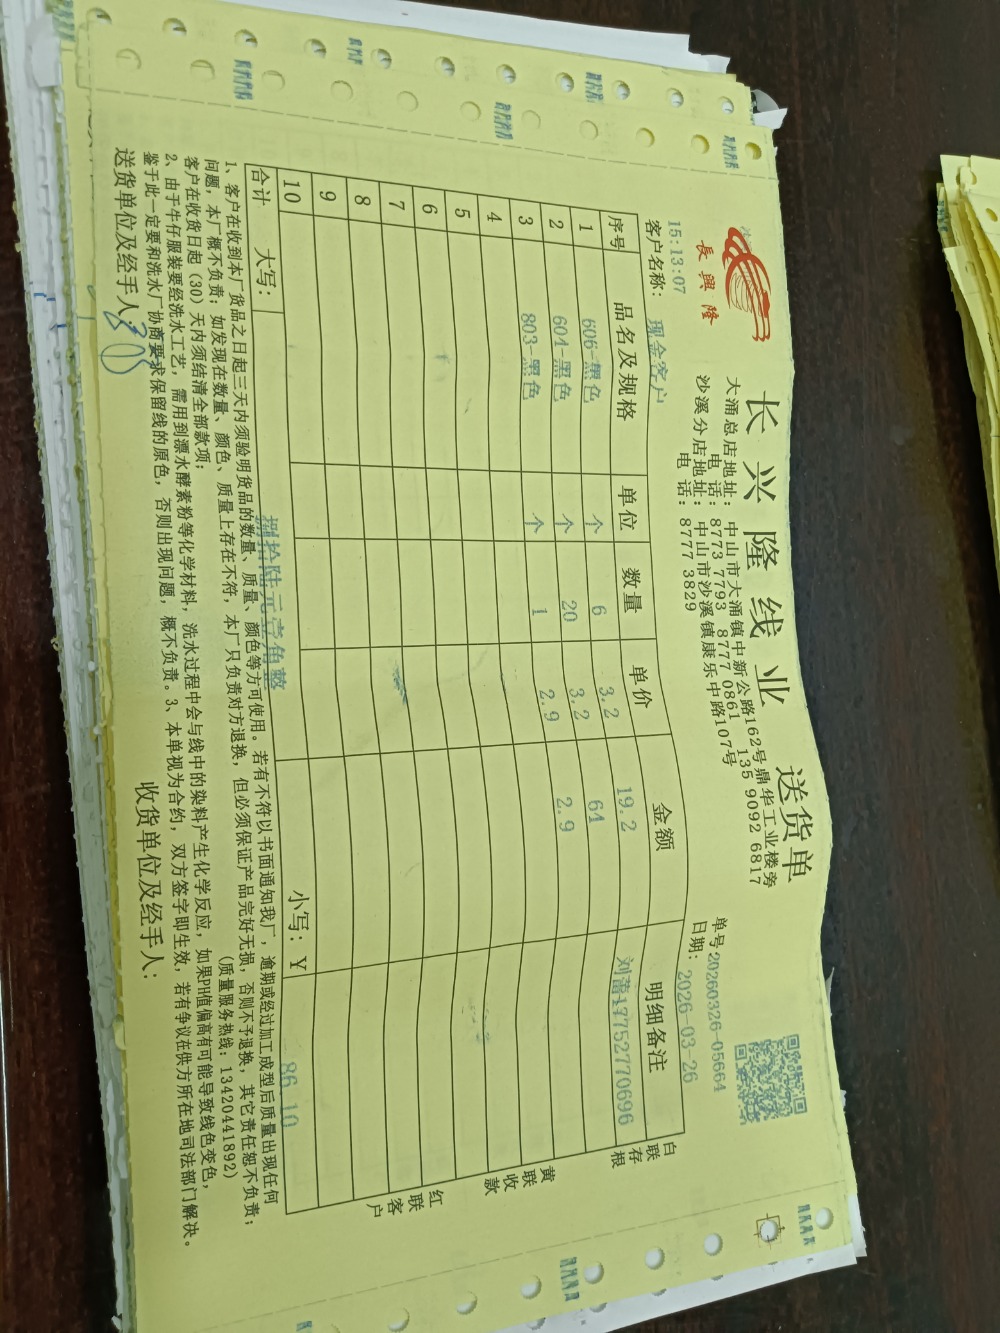 長興隆
长兴隆线业 送货单
大涌总店地址：中山市大涌镇中新公路162号鼎华工业楼旁
电话：8773 7793 8777 0861 135 9092 6817
沙溪分店地址：中山市沙溪镇康乐中路107号
电话：8777 3829
单号 20260326-05664
15:13:07
日期：2026-03-26
客户名称：现金客户
序号 品名及规格 单位 数量 单价 金额 明细备注
1 606-黑色 个 6 3.2 19.2 刘蕾17752770696
2 604-黑色 个 20 3.2 64
3 803-黑色 个 1 2.9 2.9
4
5
6
7
8
9
10
合计 大写：捌拾陆元壹角整 小写：Y 86.10
白联存根
黄联收款
红联客户
1、客户在收到本厂货品之日起三天内须验明货品的数量、质量、颜色等方可使用。若有不符以书面通知我厂，逾期或经过加工成型后质量出现任何
问题，本厂概不负责；如发现在数量、颜色、质量上存在不符，本厂只负责对方退换，但必须保证产品完好无损，否则不予退换，其它责任恕不负责；
客户在收货日起（30）天内须结清全部款项； （质量服务热线：13420441892）
2、由于牛仔服装要经洗水工艺，需用到漂水酵素粉等化学材料，洗水过程中会与线中的染料产生化学反应，如果PH值偏高有可能导致线色变色，
鉴于此一定要和洗水厂协商要求保留线的原色，否则出现问题，概不负责。3、本单视为合约，双方签字即生效，若有争议在供方所在地司法部门解决。
送货单位及经手人： 收货单位及经手人：